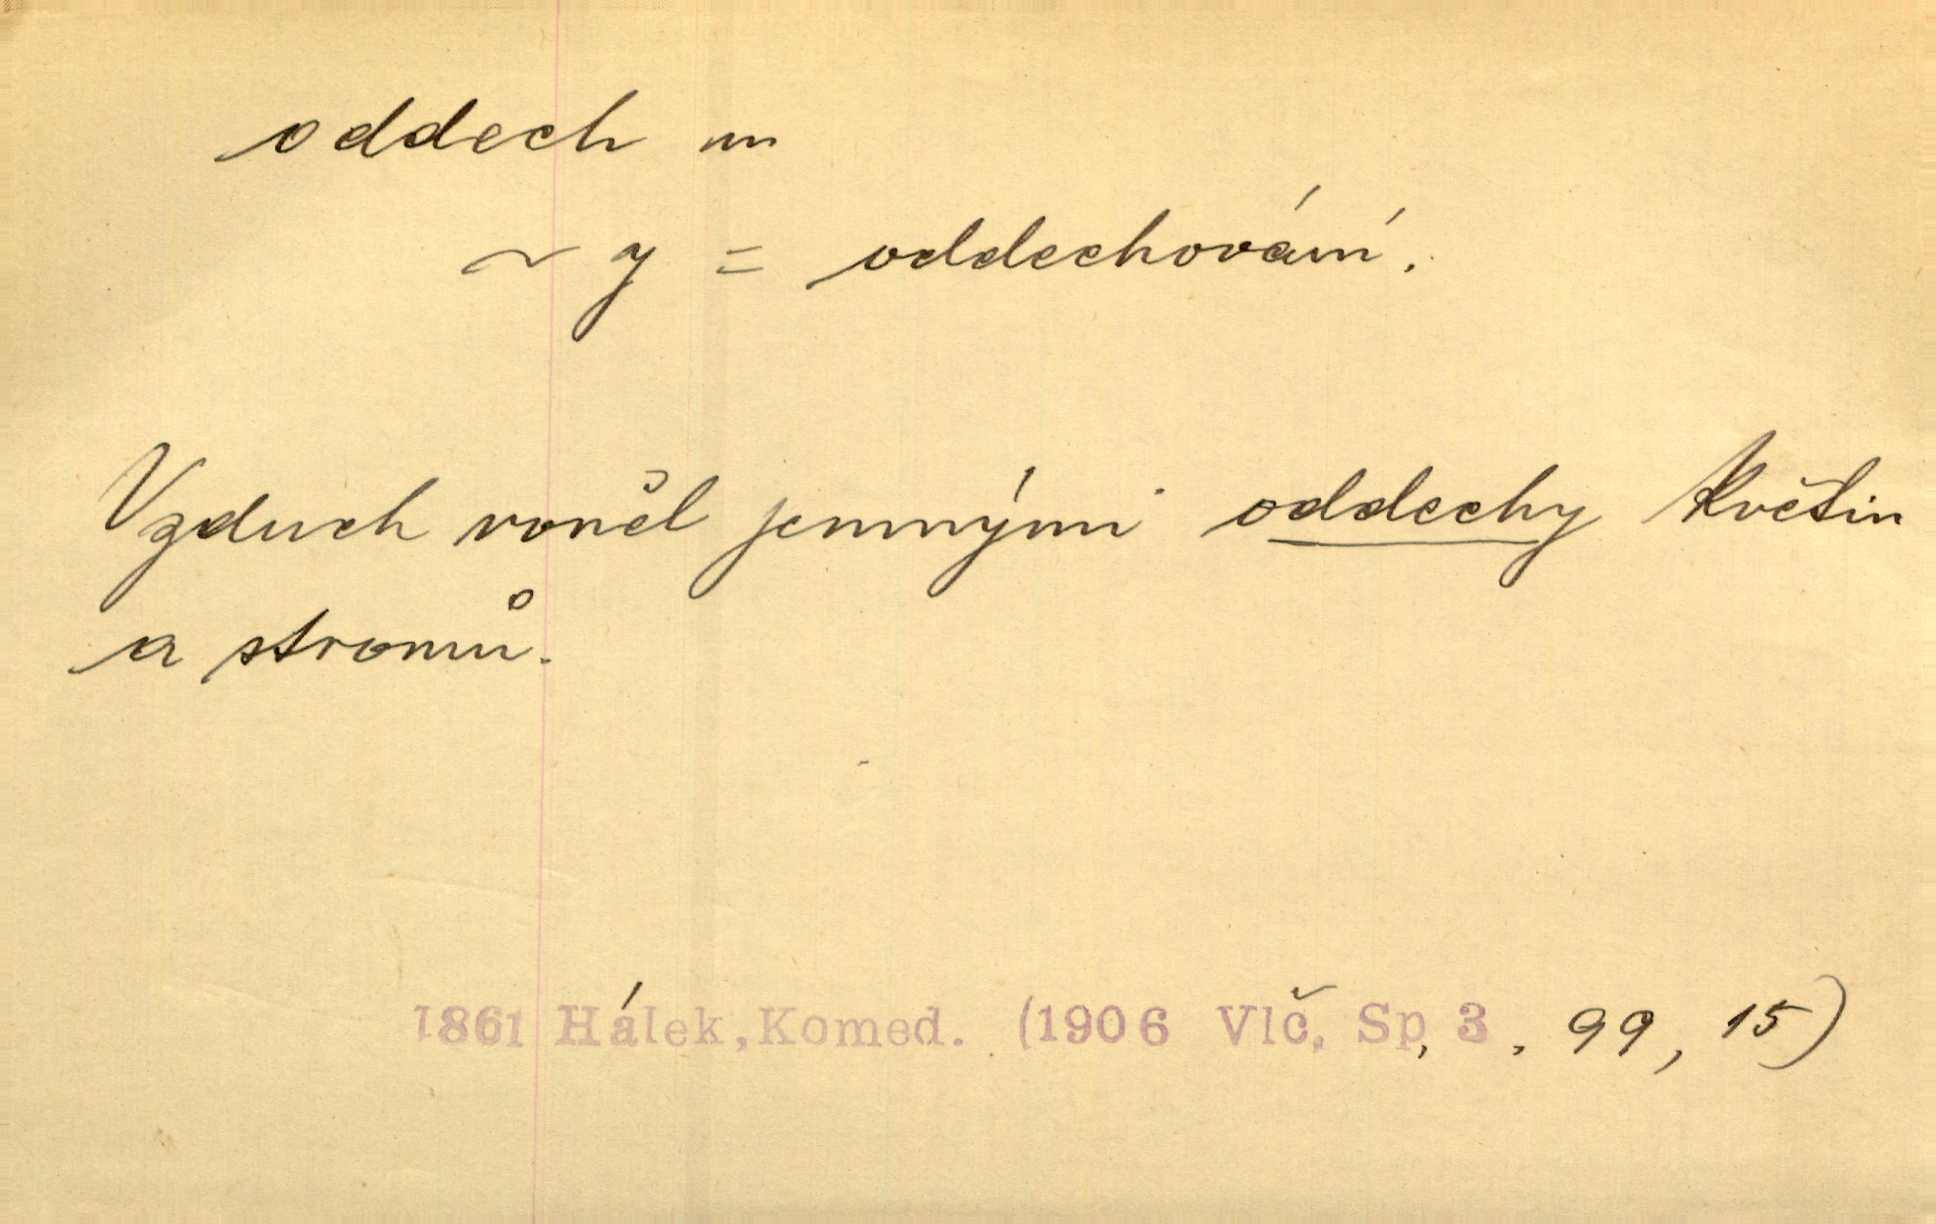 oddech m
~ y = oddechování.
Vzduch voněl jemnými oddechy květin
a stromů.
1861 Hálek, Komed. (1906 Vlč, Sp, 3, 99, 15)